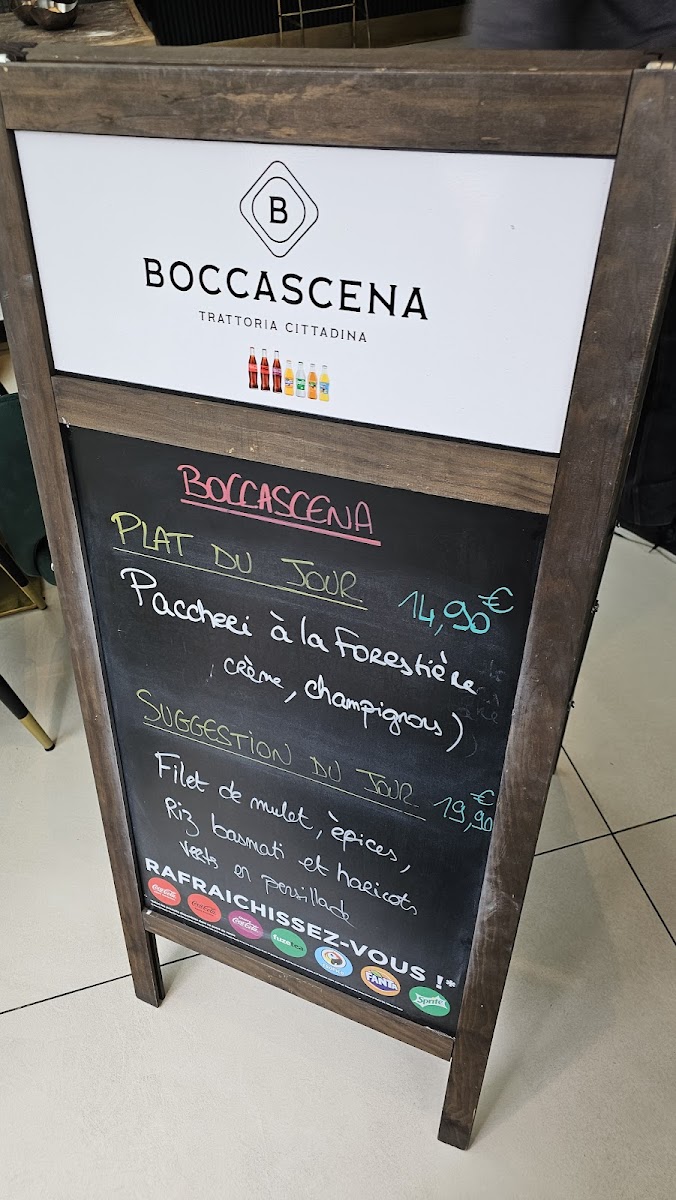 B
BOCCASCENA
TRATTORIA CITTADINA
BOCCASCENA
PLAT DU JOUR
14,90€
Paccheri à la Forestière
crème, champignons)
SUGGESTION DU JOUR
19,90€
Filet de mulet, èpices,
Riz basmati et haricots
verts en persillade
RAFRAICHISSEZ-VOUS !*
Coca-Cola
Coca-Cola
Coca-Cola
fuzetea
FANTA
Sprite